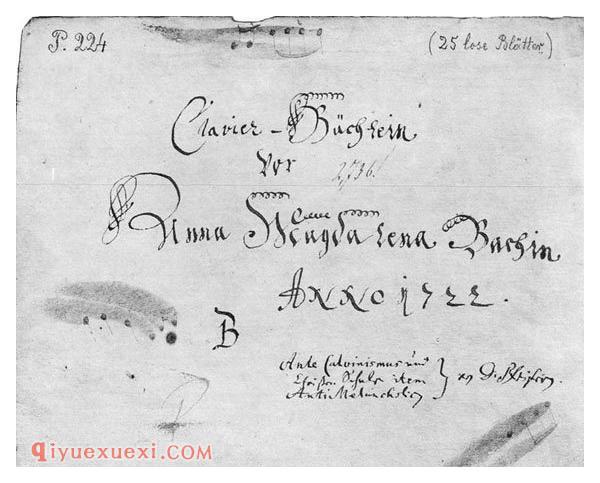 P. 224
(25 lose Blätter)
Clavier-Büchlein
vor
2,736.
Anna Magdalena Bachin
ANNO 1722.
B
Ante Calvinismus und
Christen Schule item
Anti Melancholicus
qiyuexuexi.COM